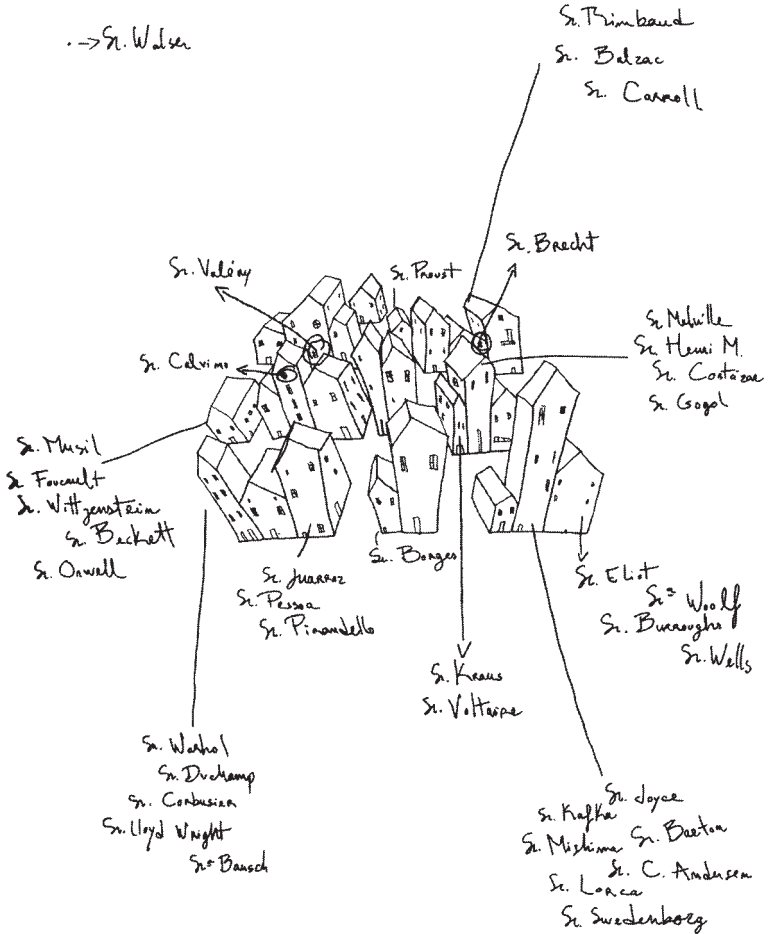 Sr. Rimbaud
Sr. Balzac
Sr. Carroll
.->Sr. Walser
Sr. Brecht
Sr. Valéry
Sr. Proust
Sr. Calvino
Sr. Melville
Sr. Henri M.
Sr. Cortázar
Sr. Gogol
Sr. Musil
Sr. Foucault
Sr. Wittgenstein
Sr. Beckett
Sr. Orwell
Sr. Borges
Sr. Juarroz
Sr. Pessoa
Sr. Pirandello
Sr. Eliot
Srª Woolf
Sr. Burroughs
Sr. Wells
Sr. Kraus
Sr. Voltaire
Sr. Warhol
Sr. Duchamp
Sr. Corbusier
Sr. Lloyd Wright
Srª Bausch
Sr. Joyce
Sr. Kafka
Sr. Mishima
Sr. Breton
Sr. C. Andersen
Sr. Lorca
Sr. Swedenborg